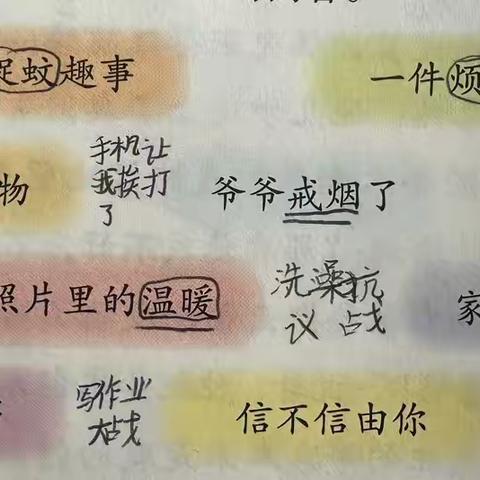 捉蚊趣事
一件烦
物
手机让
我挨打
了
爷爷戒烟了
照片里的温暖
洗澡抗
议 战
家
写作业
大战
信不信由你